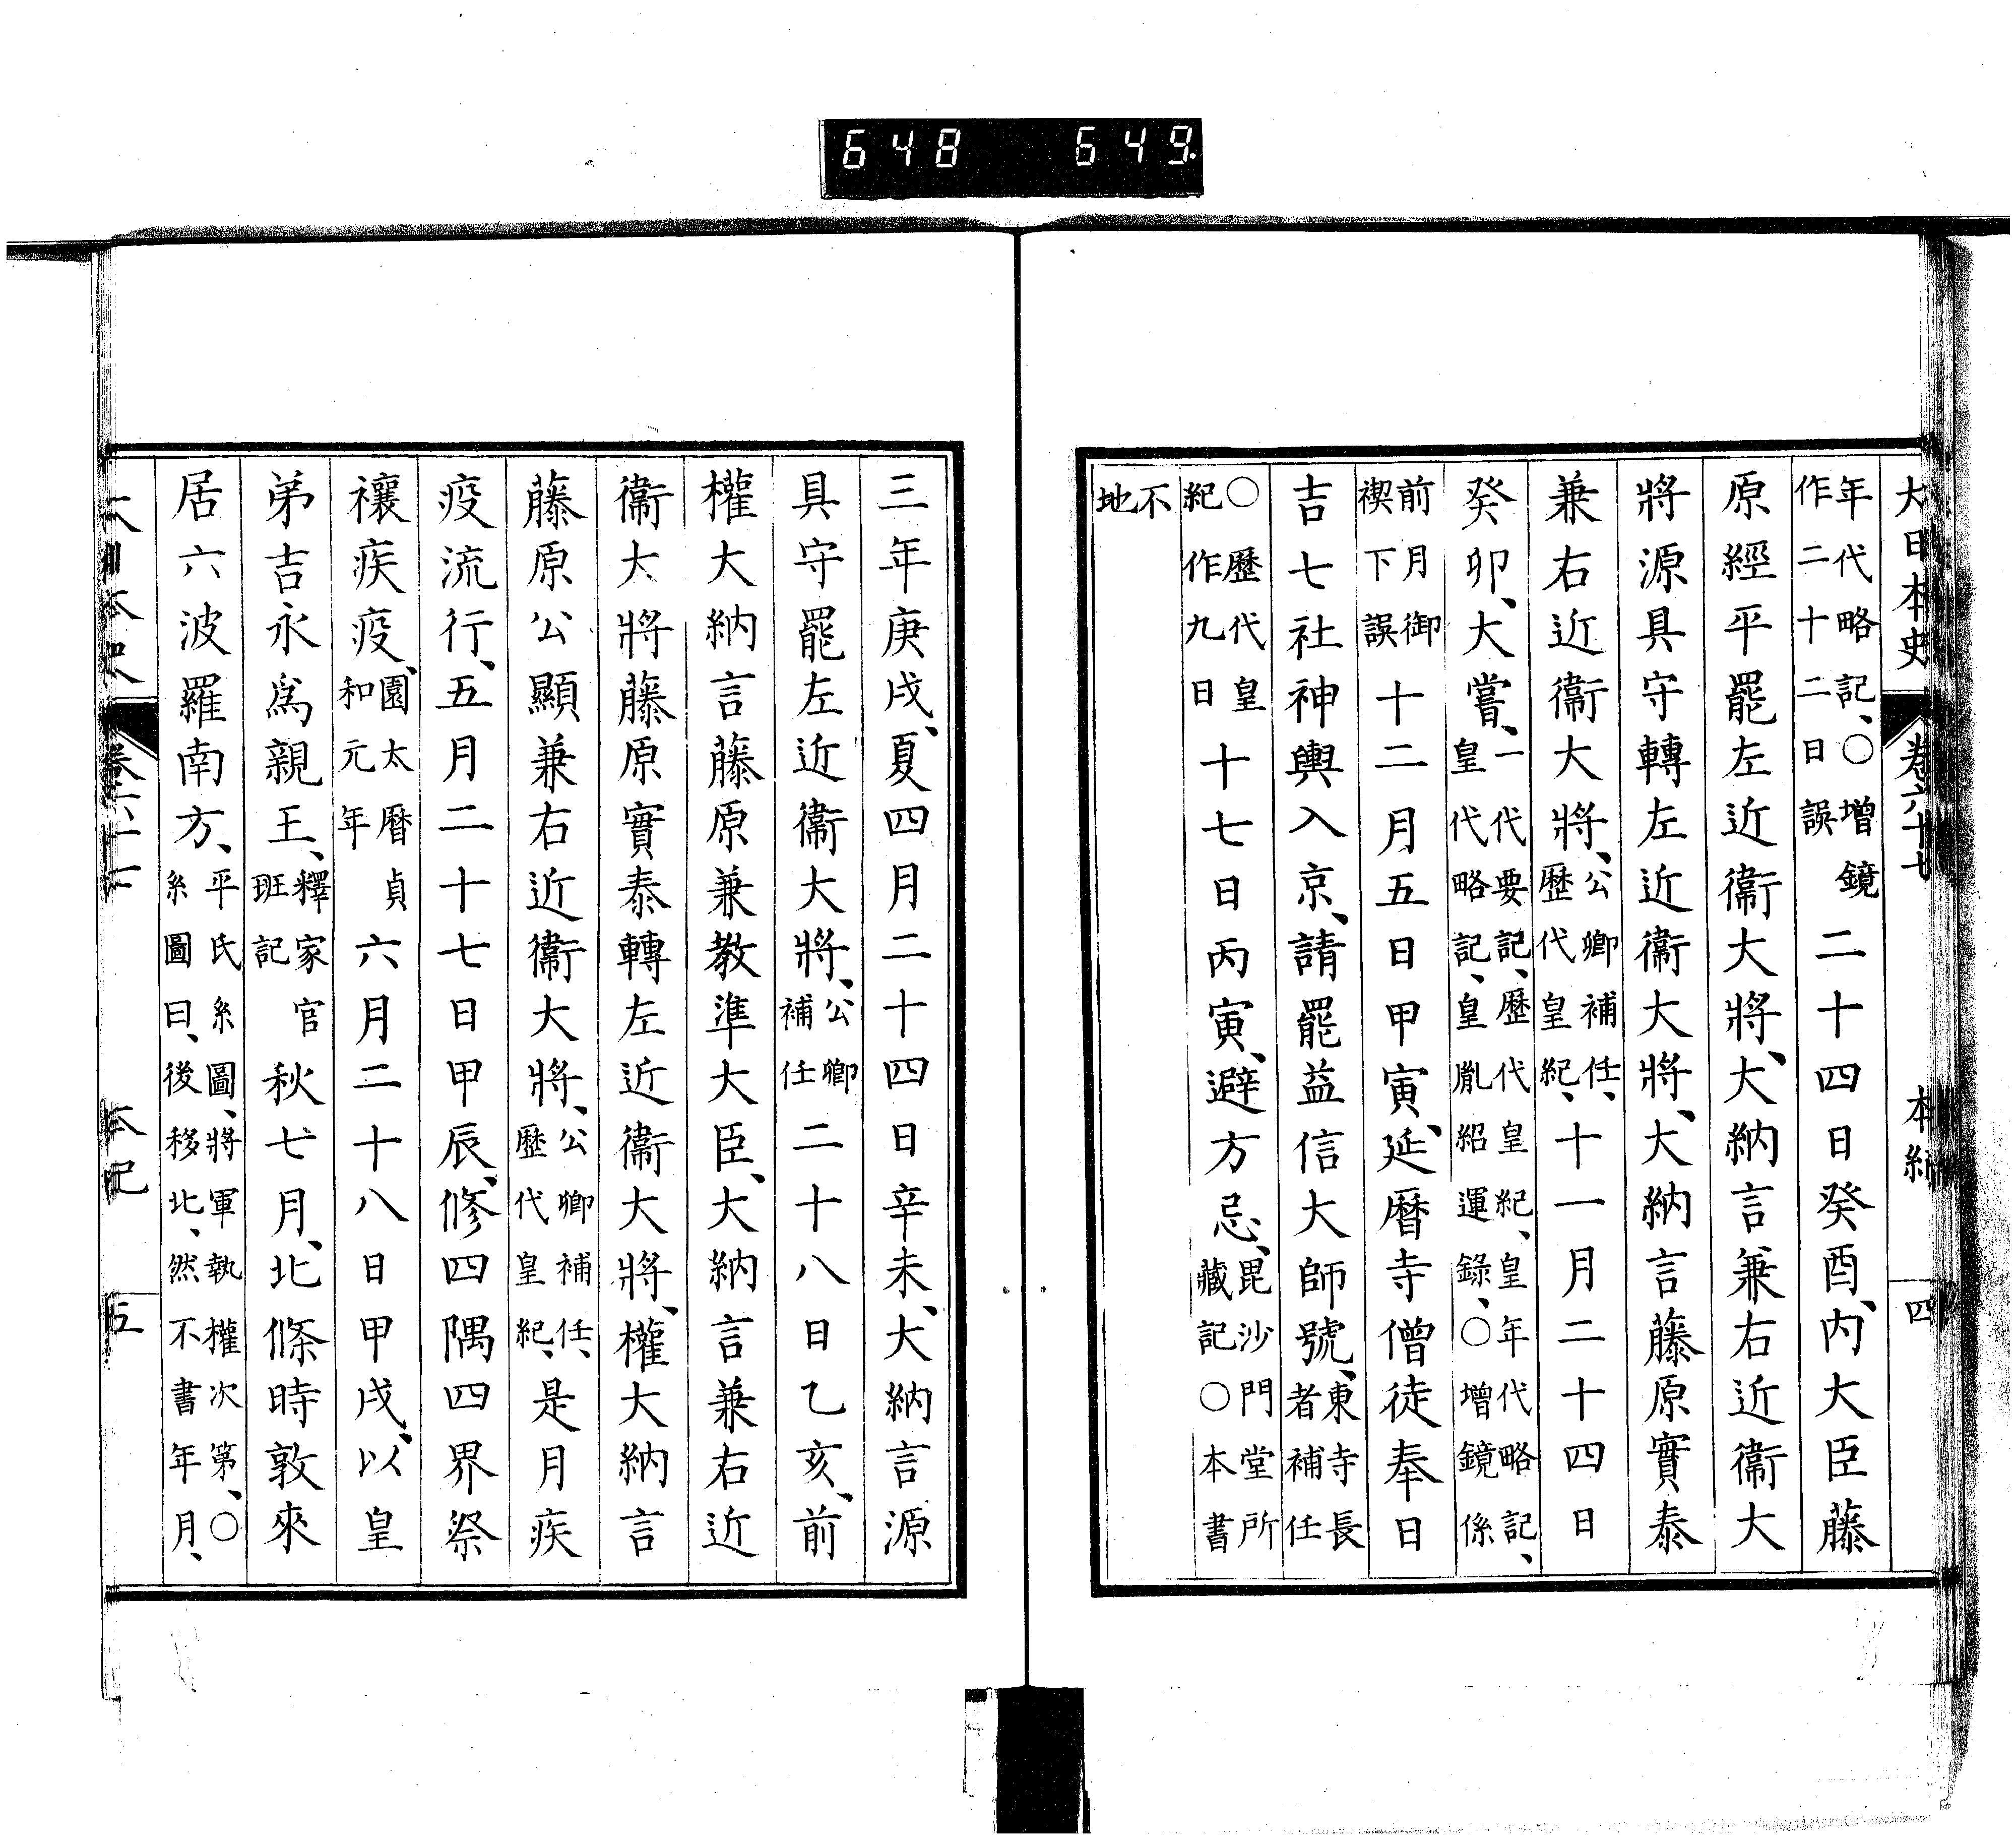 648 649.
大日本史 卷六十七 本紀 四
年代略記、○增鏡作二十二日誤二十四日癸酉、內大臣藤
原經平罷左近衞大將、大納言兼右近衞大
將源具守轉左近衞大將、大納言藤原實泰
兼右近衞大將、公卿補任、歷代皇紀、十一月二十四日
癸卯、大嘗、一代要記、歷代皇紀、皇年代略記、皇代略記、皇胤紹運錄、○增鏡係
前月御禊下誤十二月五日甲寅、延曆寺僧徒奉日
吉七社神輿入京、請罷益信大師號、東寺長者補任
○歷代皇紀作九日十七日丙寅、避方忌、毘沙門堂所藏記○本書
不地
三年庚戌、夏四月二十四日辛未、大納言源
具守罷左近衞大將、公卿補任二十八日乙亥、前
權大納言藤原兼教準大臣、大納言兼右近
衞大將藤原實泰轉左近衞大將、權大納言
藤原公顯兼右近衞大將、公卿補任、歷代皇紀、是月疾
疫流行、五月二十七日甲辰、修四隅四界祭
禳疾疫、園太曆貞和元年六月二十八日甲戌、以皇
弟吉永爲親王、釋家官班記秋七月、北條時敦來
居六波羅南方、平氏系圖、將軍執權次第、○系圖曰、後移北、然不書年月、
本紀 五